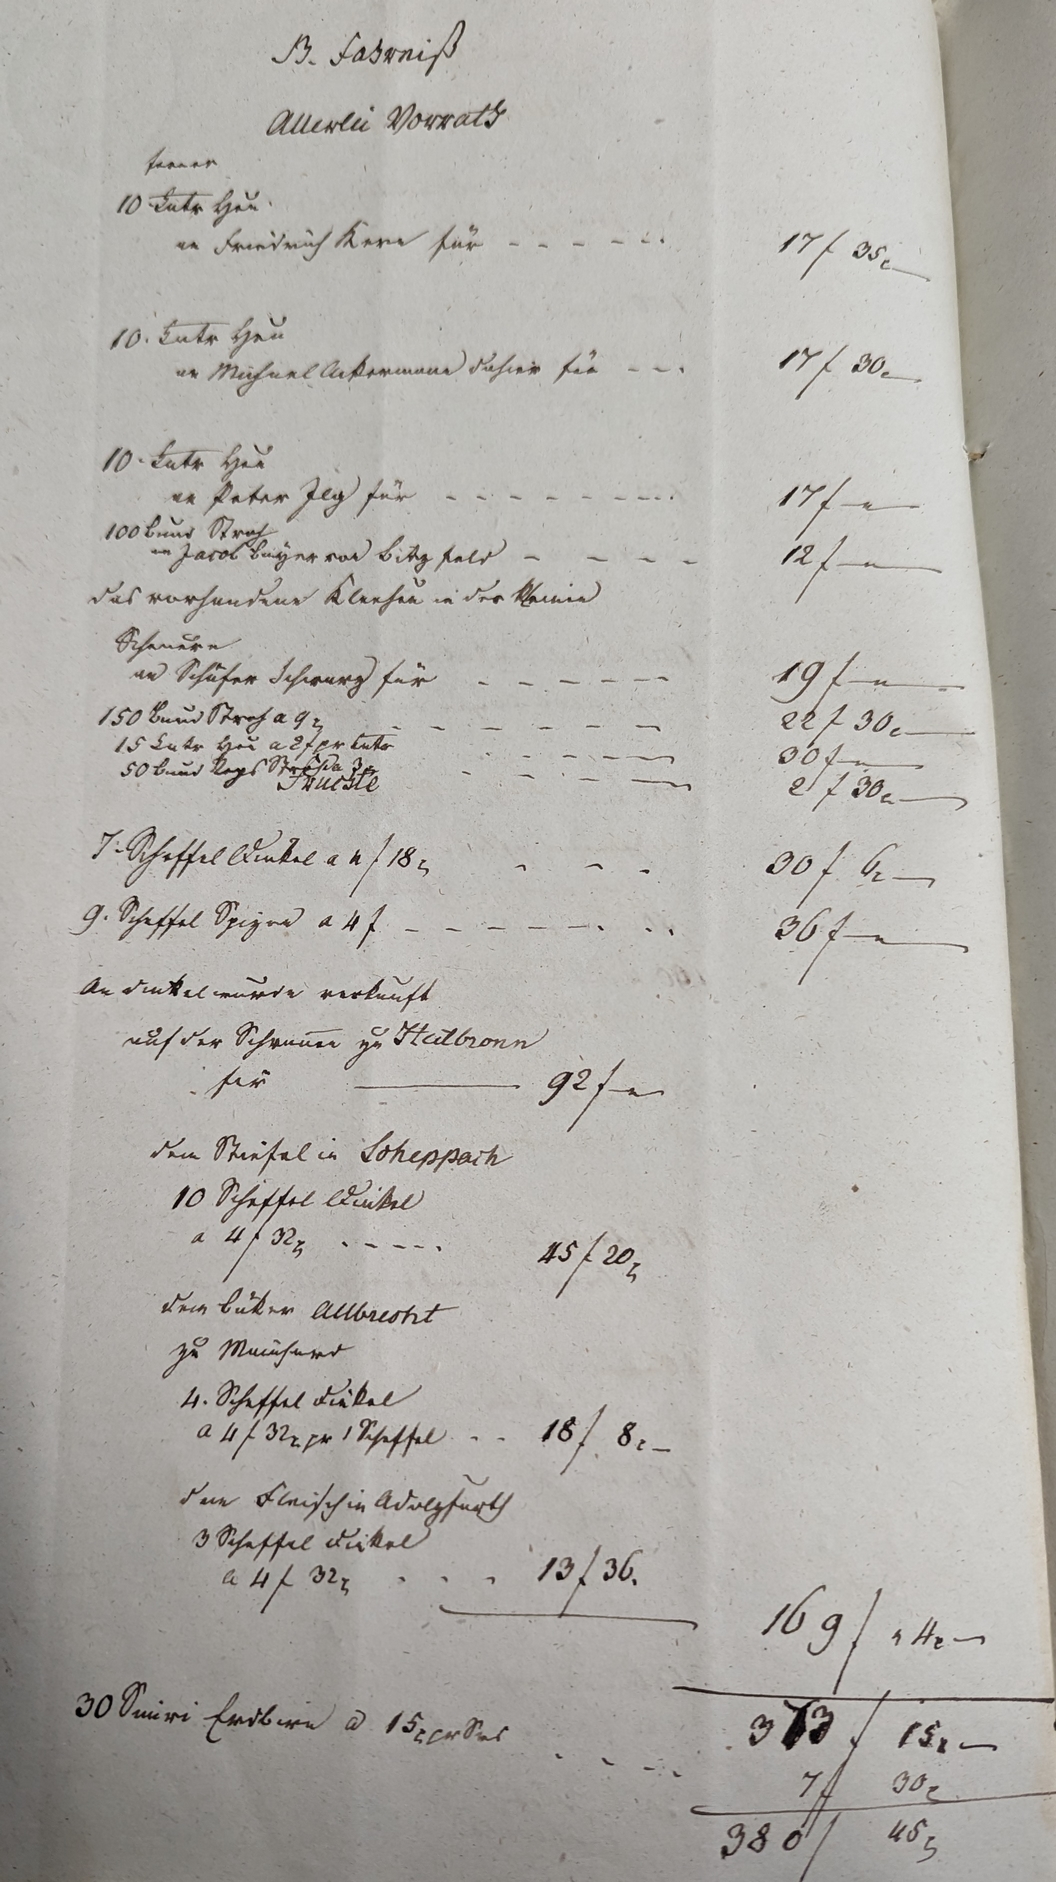 B. Fahrniß
Allerlei Vorrath
ferner
10 Cntr Heu
an Friedrich Kern für 17 f 35 x
10. Cntr Heu
an Michael Ackermann dahier für 17 f 30 x
10. Cntr Heu
an Peter Ilg für 17 f —
100 Bund Stroh
an Jacob Bayer von Bitzfeld 12 f —
das vorhandene Kleeheu in der kleinen
Scheuer
an Schäfer Schwarz für 19 f —
150 Bund Stroh a 9 x 22 f 30 x
15 Cntr Heu a 2 f pr Cntr 30 f —
50 Bund Reps Stroh a 3 x 2 f 30 x
Früchte
7. Scheffel Dinkel a 4 f 18 x 30 f 6 x
9. Scheffel a 4 f 36 f —
An Dinkel wurde verkauft
auf der Schranne zu Heilbronn
für 92 f —
dem Stiefel in Scheppach
10 Scheffel Dinkel
a 4 f 32 x 45 f 20 x
dem Bäker Allbrecht
zu Mainhard
4. Scheffel Dinkel
a 4 f 32 x pr 1 Scheffel 18 f 8 x
dem Fleisch in Adolzfurth
3 Scheffel Dinkel
a 4 f 32 x 13 f 36.
169 f 4 x
373 f 15 x
30 Simri Erdbirn a 15 x pr Sri 7 f 30 x
380 f 45 x